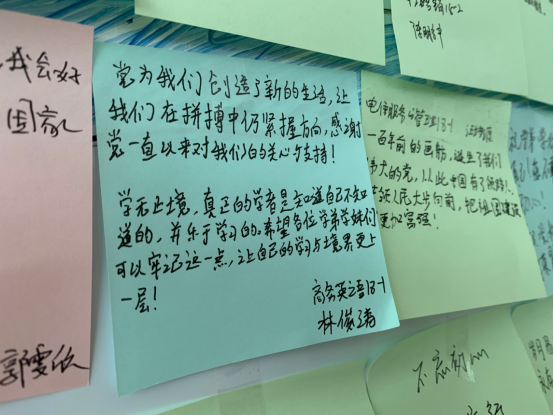 我会好
国家
郭雯欣
党为我们创造了新的生活,让
我们在拼搏中仍紧握方向,感谢
党一直以来对我们的关心与支持!
学无止境,真正的学者是知道自己不知
道的,并乐于学习的。希望各位学弟学妹们
可以牢记这一点,让自己的学习与境界更上
一层!
商务英语18-1
林俊涛
电信服务与管理18-1
一百年前的画舫,诞生了我们
伟大的党,从此中国有了领路人
人民大步向前,把祖国建设
更加富强!
不忘初心